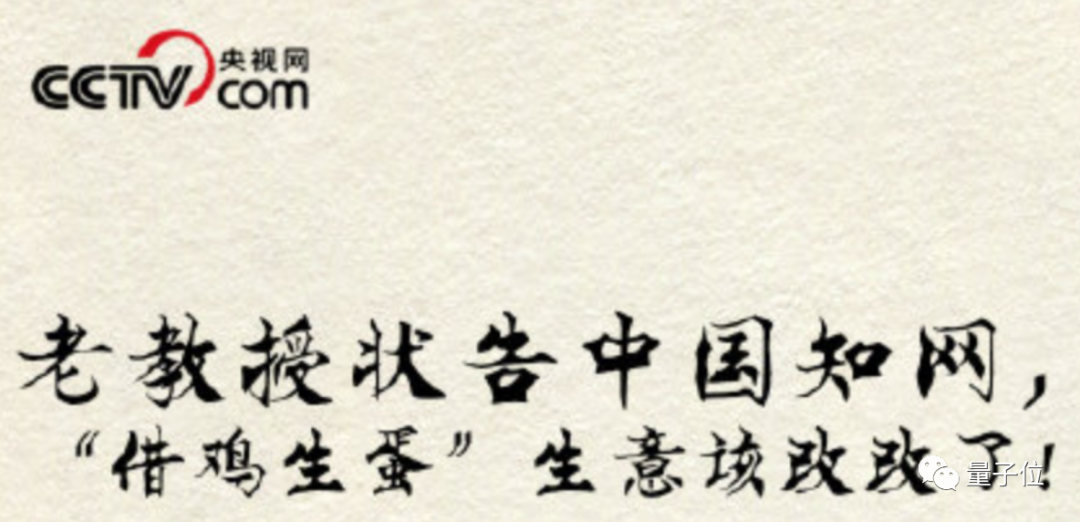 CCTV 央视网
com
老教授状告中国知网，
“借鸡生蛋”生意该改改了！
量子位